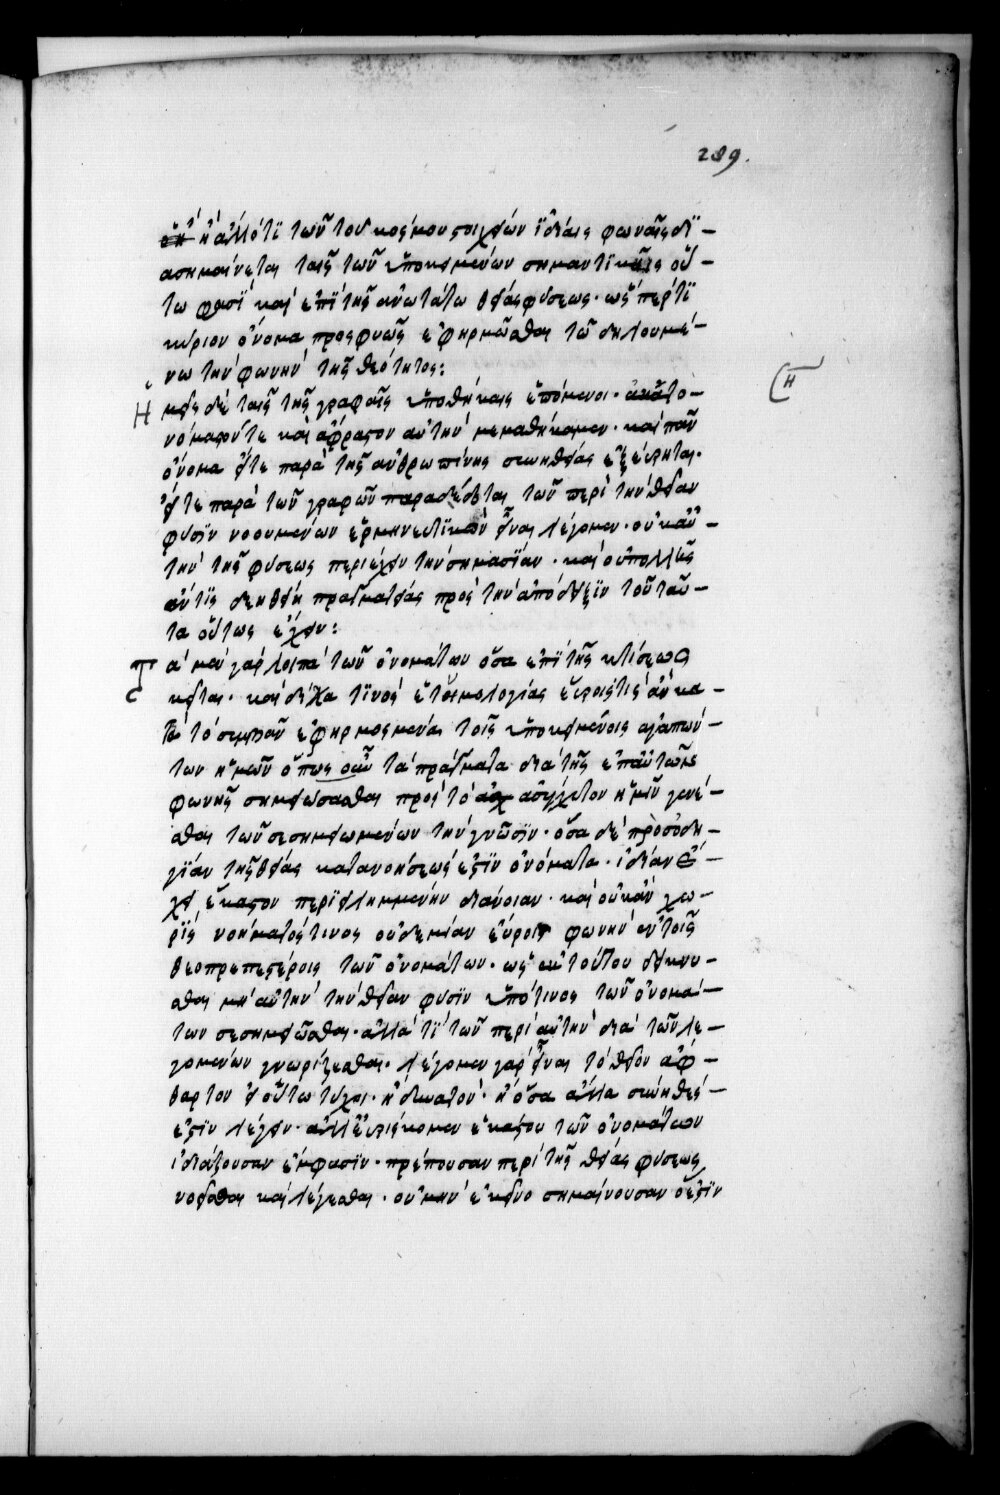 289.
ἢ ἄλλό τϊ τῶν τοῦ κόσμου στοιχείων ϊδίαις φωναῖς δϊ-
ασημαίνεται ταῖς τῶν ὑποκειμένων σημαντϊκαῖς οὕ-
τω φασϊ καὶ ἐπϊ τῆς ἀνωτάτω θείας φύσεως. ὥσπερ τϊ
κύριον ὄνομα προσφυῶς ἐφηρμῶσθαι τῶ δηλουμέ-
νω τὴν φωνὴν τῆς θεότητος:
Ἡμεῖς δὲ ταῖς τῆς γραφαῖς ὑποθήκαις ἑπόμενοι. ἀκατο-
νόμαστόν τε καὶ ἄφραστον αὐτὴν μεμαθήκαμεν. καὶ πᾶν
ὄνομα εἴτε παρὰ τῆς ἀνθρωπίνης συνηθείας ἐξεύρηται.
εἴτε παρὰ τῶν γραφῶν παραδέδοται τῶν περὶ τὴν θείαν
φύσϊν νοουμένων ἑρμηνευτϊκὸν εἶναι λέγομεν. οὐκ αὐ-
τὴν τῆς φύσεως περιέχειν τὴν σημασίαν. καὶ οὐ πολλῆς
ἄν τϊς δεηθείη πραγματείας πρὸς τὴν ἀπόδειξϊν τοῦ ταῦ-
τα οὕτως ἔχειν:
Τὰ μὲν γὰρ λοιπὰ τῶν ὀνομάτων ὅσα ἐπϊ τῆς κτίσεως
κεῖται. καὶ δίχα τϊνὸς ἐτοιμολογίας εὕροι τις ἂν κα-
τὰ τὸ συμβὰν ἐφηρμοσμένα τοῖς ὑποκειμένοις ἀγαπών-
των ἡμῶν ὅπως οὖν τὰ πράγματα διὰ τῆς ἐπ αὐτῶν
φωνῆς σημειώσασθαι πρὸς τὸ ἀσύγχυτον ἡμῖν γενέ-
σθαι τῶν σεσημειωμένων τὴν γνῶσϊν. ὅσα δὲ πρὸς ὁδη-
γϊαν τῆς θείας κατανοήσεώς ἐστϊν ὀνόματα. ἰδίαν ἔ-
χει ἕκαστον περϊειλημμένην διάνοιαν. καὶ οὐκ ἂν χω-
ρϊς νοήματός τινος οὐδεμίαν εὕροις φωνὴν ἐν τοῖς
θεοπρεπεστέροις τῶν ὀνομάτων. ὡς ἐκ τούτου δείκνυ-
σθαι μὴ αὐτὴν τὴν θείαν φύσϊν ὑπό τινος τῶν ὀνομά-
των σεσημειῶσθαι. ἀλλά τϊ τῶν περὶ αὐτὴν διὰ τῶν λε-
γομένων γνωρίζεσθαι. λέγομεν γὰρ εἶναι τὸ θεῖον ἄφ-
θαρτον εἰ οὕτω τύχοι. ἢ δυνατόν. ἢ ὅσα ἄλλα σύνηθές
ἐστϊν λέγειν. ἀλλ εὑρίσκομεν ἑκάστου τῶν ὀνομάτων
ἰδιάζουσαν ἔμφασϊν. πρέπουσαν περὶ τῆς θείας φύσεως
νοεῖσθαι καὶ λέγεσθαι. οὐ μὴν ἐκεῖνο σημαίνουσαν ὅ ἐστϊν